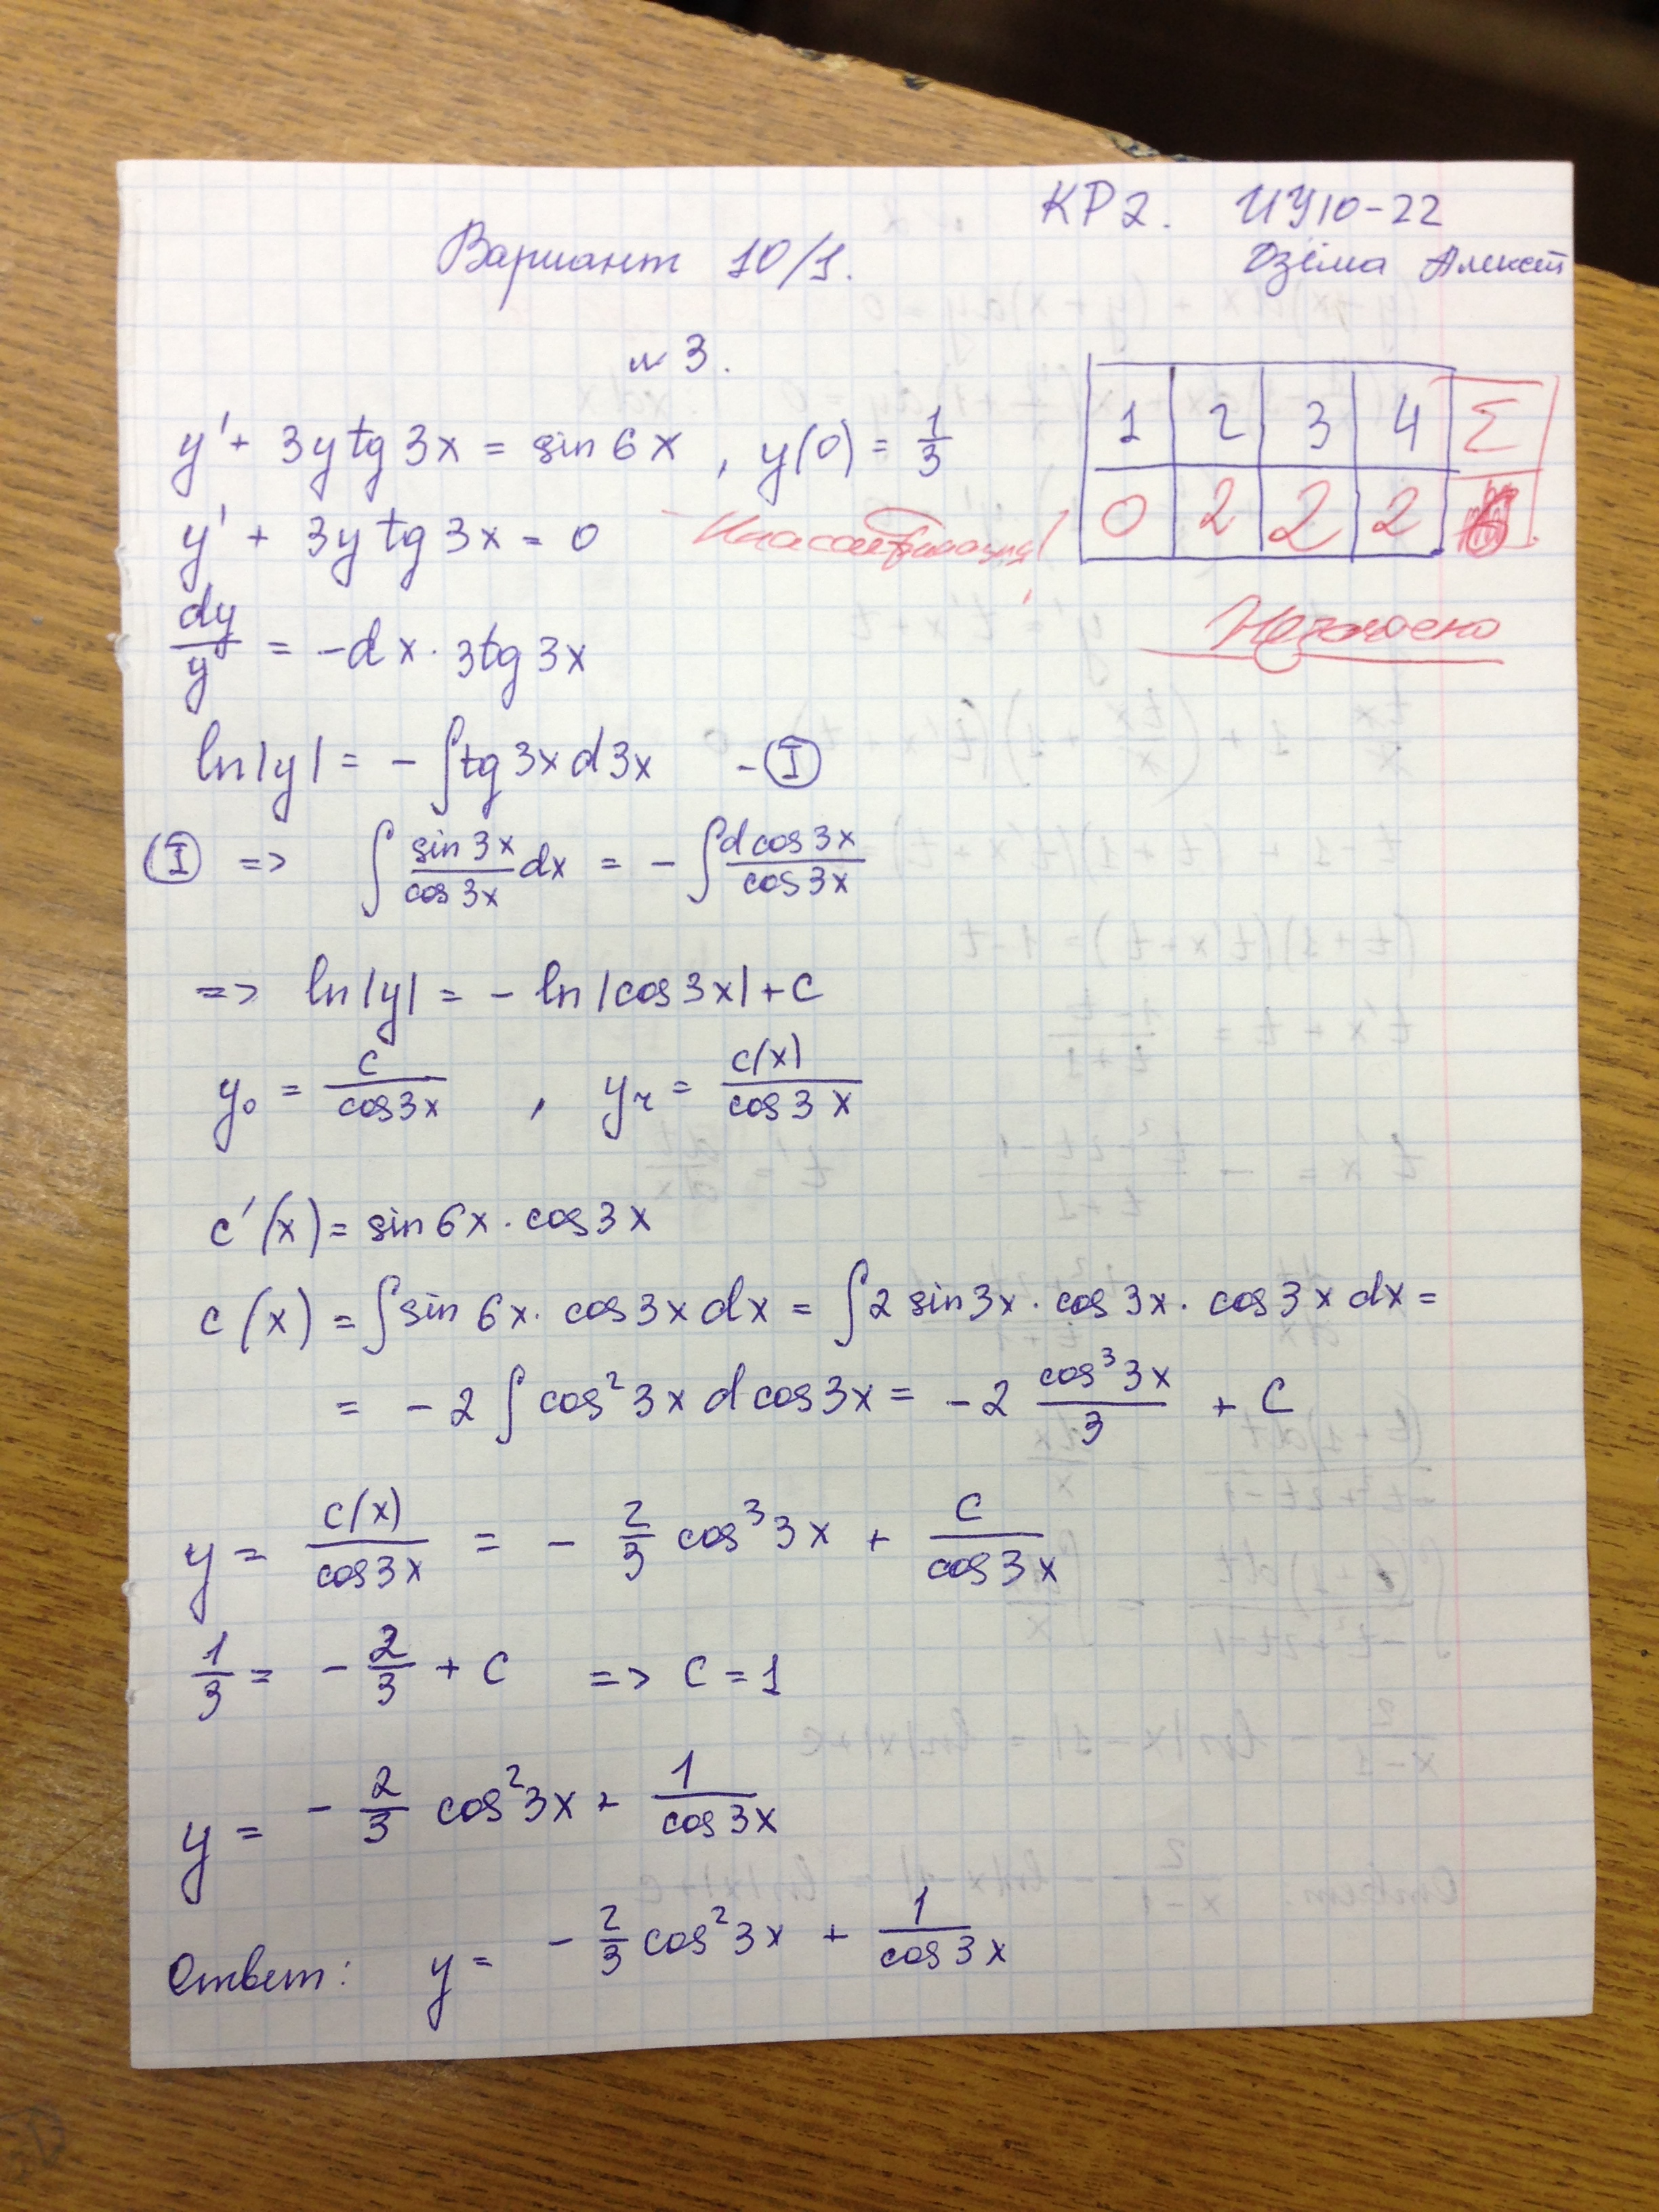 КР2. ИУ10-22
Вариант 10/1. Дзёма Алексей
№ 3.
y' + 3y tg 3x = sin 6x , y(0) = 1/3
1 2 3 4 Σ
0 2 2 2 6
y' + 3y tg 3x = 0
Незачтено
dy/y = -dx · 3tg 3x
ln|y| = - ∫tg 3x d3x - Ⓘ
Ⓘ => ∫ sin 3x/cos 3x dx = - ∫ d cos 3x/cos 3x
=> ln|y| = - ln|cos 3x| + C
y₀ = C/cos 3x , yч = C(x)/cos 3x
C'(x) = sin 6x · cos 3x
C(x) = ∫ sin 6x · cos 3x dx = ∫ 2 sin 3x · cos 3x · cos 3x dx =
= - 2 ∫ cos² 3x d cos 3x = - 2 cos³ 3x/3 + C
y = C(x)/cos 3x = - 2/3 cos³ 3x + C/cos 3x
1/3 = - 2/3 + C => C = 1
y = - 2/3 cos² 3x + 1/cos 3x
Ответ: y = - 2/3 cos² 3x + 1/cos 3x